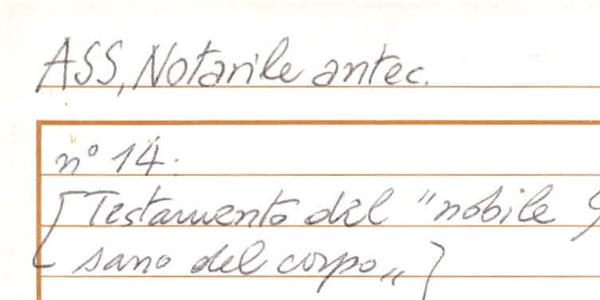 ASS, Notarile antec.
n° 14.
[Testamento del "nobile
sano del corpo„]